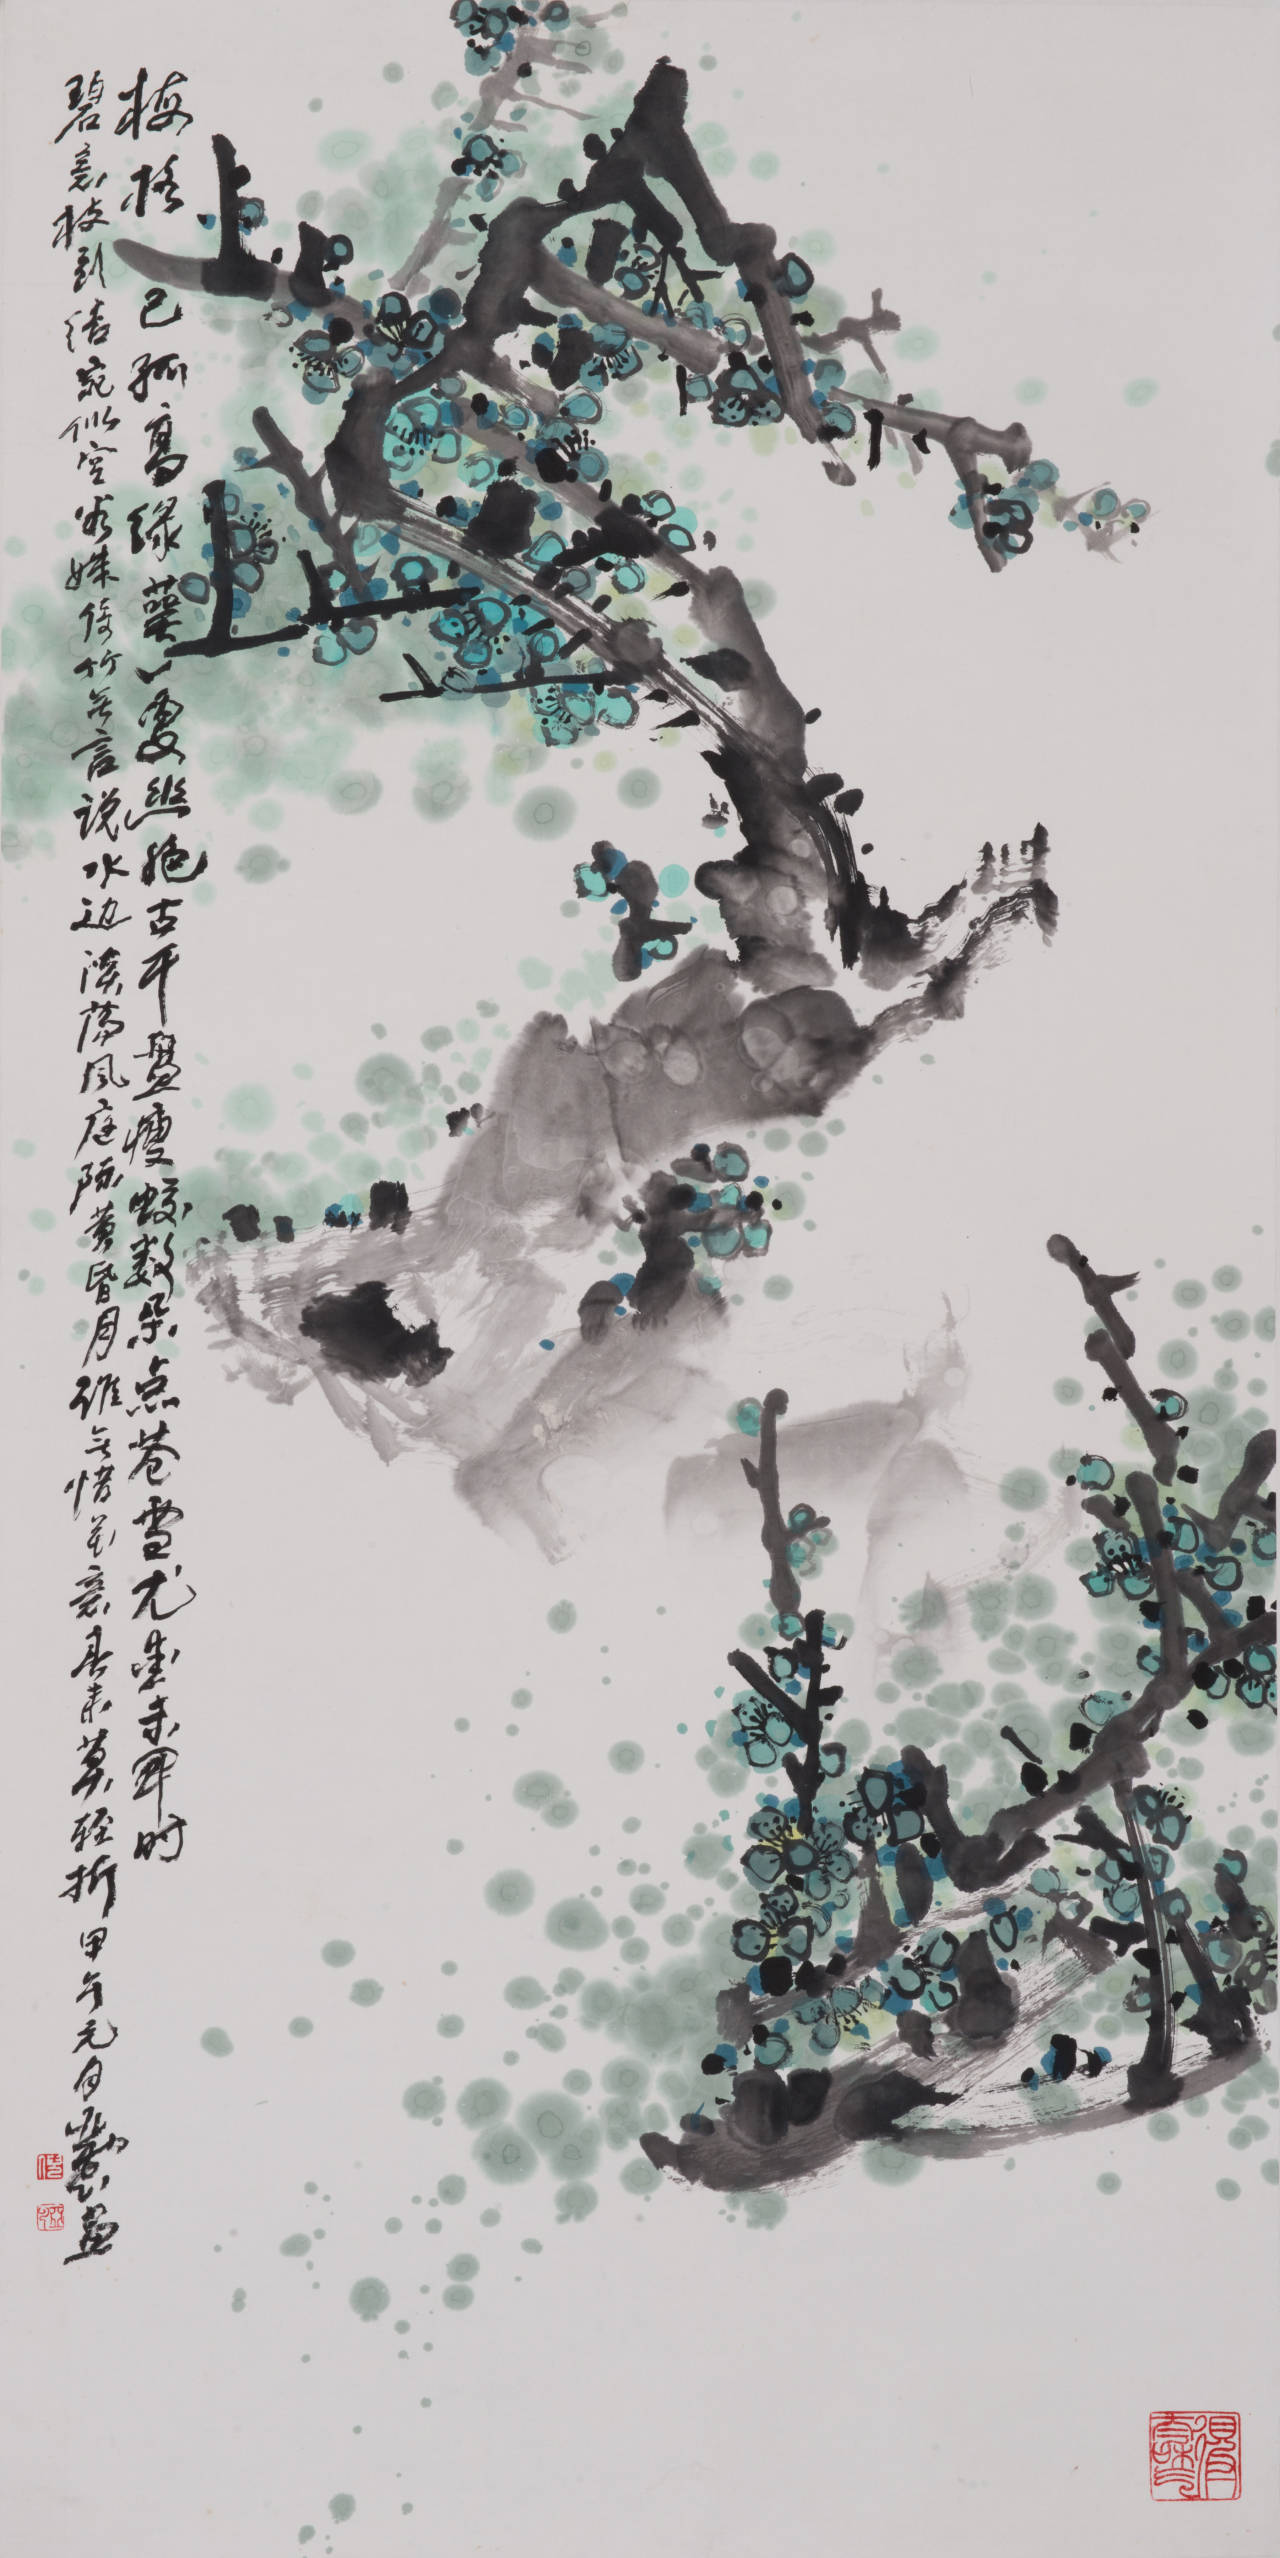 梅格已孤高绿萼更幽绝古干盘瘦蛟数朵点苍雪尤爱未开时
碧意枝头结宛似空谷姝倚竹无言说水边淡荡风庭际黄昏月谁无惜花意春来莫轻折甲午元月画